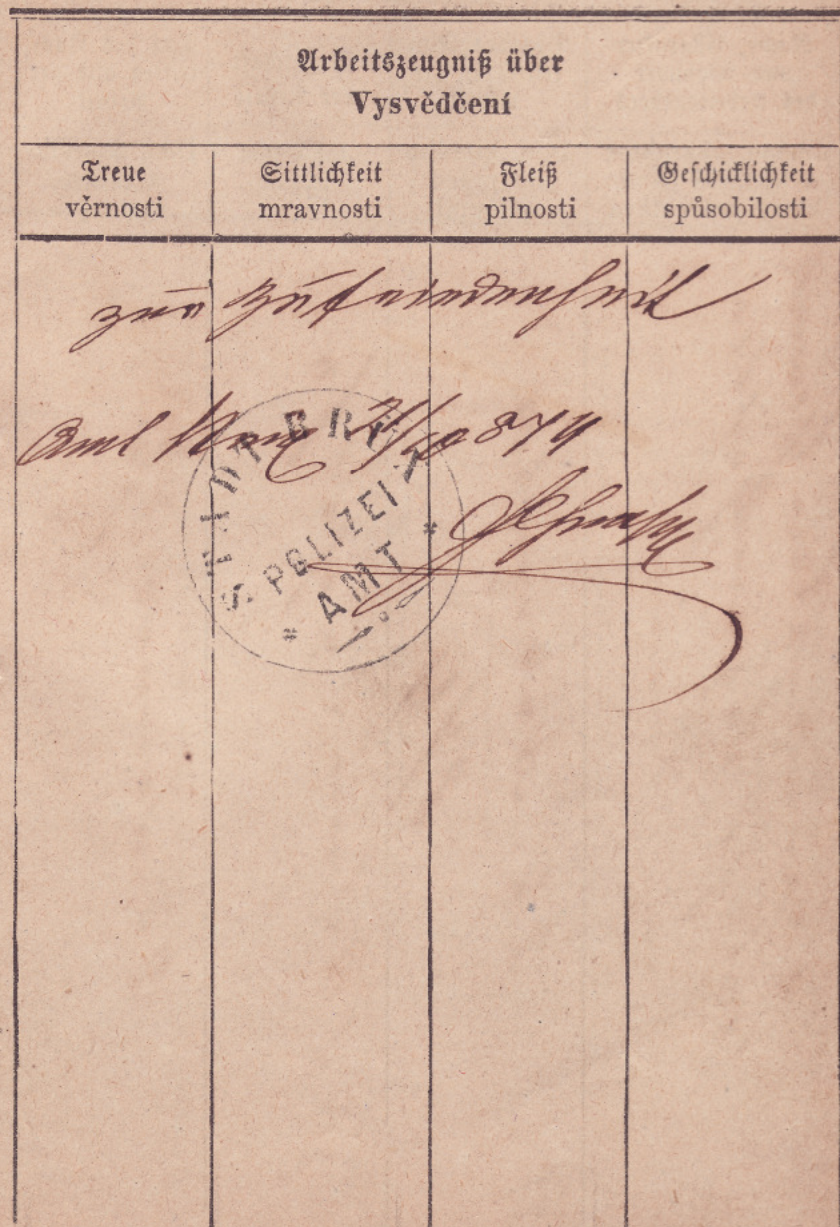 Arbeitszeugniß über
Vysvědčení
Treue
věrnosti
Sittlichkeit
mravnosti
Fleiß
pilnosti
Geschicklichkeit
spůsobilosti
zur Zufriedenheit
Amt 874
STADT
POLIZEI
AMT